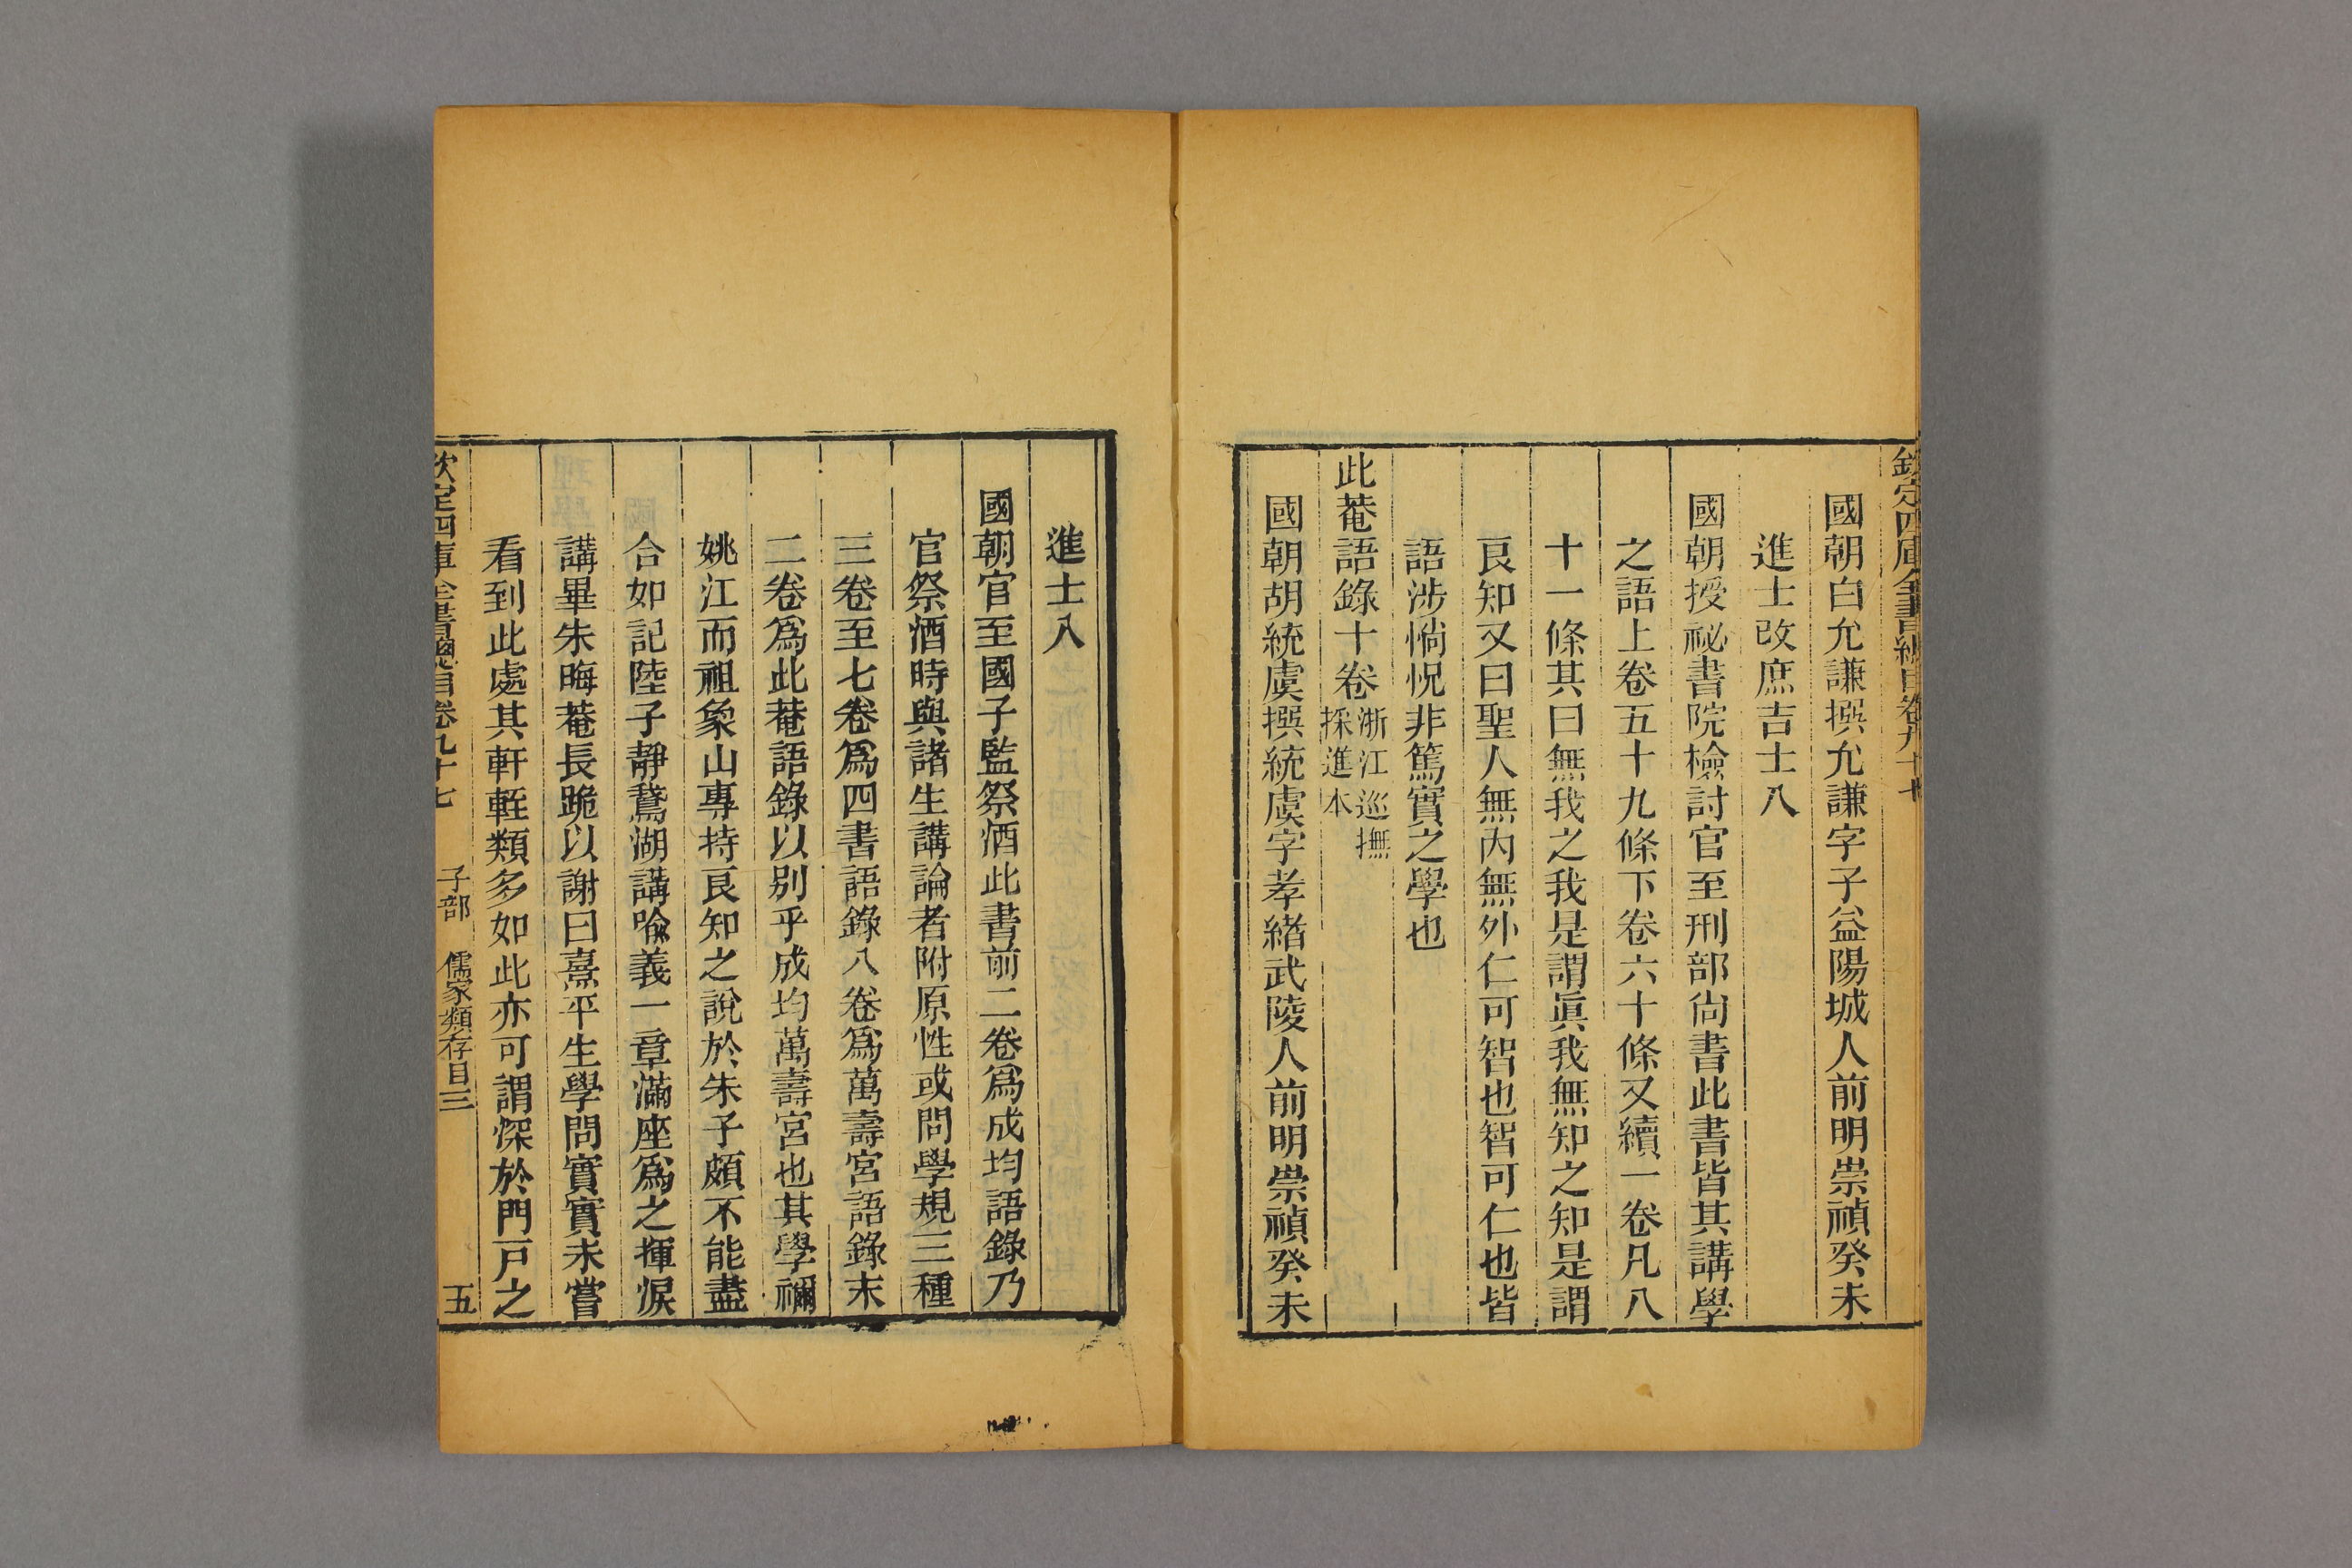 欽定四庫全書總目卷九十七
國朝白允謙撰允謙字子益陽城人前明崇禎癸未
進士改庶吉士入
國朝授祕書院檢討官至刑部尚書此書皆其講學
之語上卷五十九條下卷六十條又續一卷凡八
十一條其曰無我之我是謂眞我無知之知是謂
良知又曰聖人無內無外仁可智也智可仁也皆
語涉惝怳非篤實之學也
此菴語錄十卷浙江巡撫採進本
國朝胡統虞撰統虞字孝緒武陵人前明崇禎癸未
進士入
國朝官至國子監祭酒此書前二卷爲成均語錄乃
官祭酒時與諸生講論者附原性或問學規三種
三卷至七卷爲四書語錄八卷爲萬壽宮語錄末
二卷爲此菴語錄以别乎成均萬壽宮也其學禰
姚江而祖象山專持良知之說於朱子頗不能盡
合如記陸子靜鵞湖講喩義一章滿座爲之揮淚
講畢朱晦菴長跪以謝曰熹平生學問實實未嘗
看到此處其軒輊類多如此亦可謂深於門戸之
欽定四庫全書總目卷九十七 子部 儒家類存目三 五